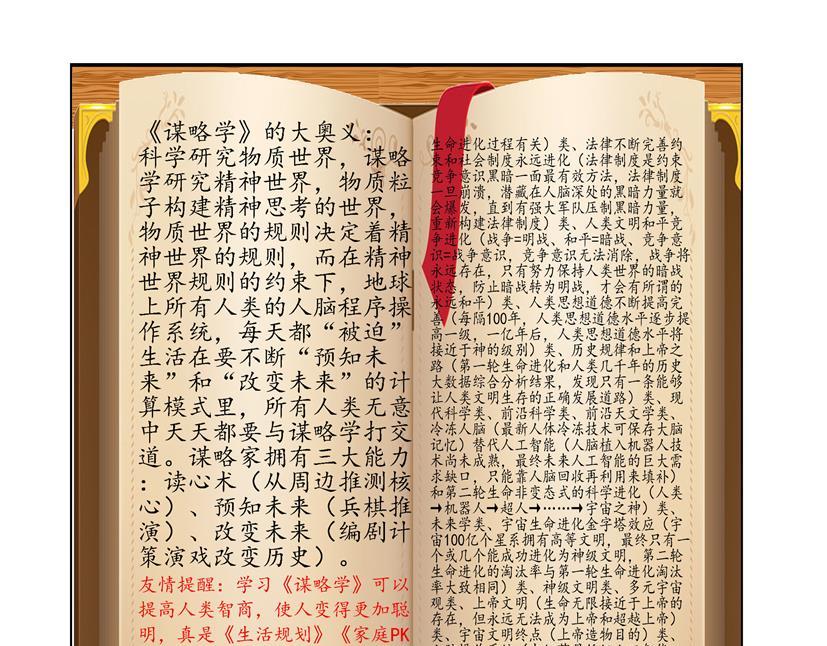 《谋略学》的大奥义：
科学研究物质世界，谋略
学研究精神世界，物质粒
子构建精神思考的世界，
物质世界的规则决定着精
神世界的规则，而在精神
世界规则的约束下，地球
上所有人类的人脑程序操
作系统，每天都“被迫”
生活在要不断“预知未
来”和“改变未来”的计
算模式里，所有人类无意
中天天都要与谋略学打交
道。谋略家拥有三大能力
：读心术（从周边推测核
心）、预知未来（兵棋推
演）、改变未来（编剧计
策演戏改变历史）。
友情提醒：学习《谋略学》可以
提高人类智商，使人变得更加聪
明，真是《生活规划》《家庭PK
生命进化过程有关）类、法律不断完善约
束和社会制度永远进化（法律制度是约束
竞争意识黑暗一面最有效方法，法律制度
一旦崩溃，潜藏在人脑深处的黑暗力量就
会爆发，直到有强大军队压制黑暗力量，
重新构建法律制度）类、人类文明和平竞
争进化（战争=明战、和平=暗战、竞争意
识=战争意识，竞争意识无法消除，战争将
永远存在，只有努力保持人类世界的暗战
状态，防止暗战转为明战，才会有所谓的
永远和平）类、人类思想道德不断提高完
善（每隔100年，人类思想道德水平逐步提
高一级，一亿年后，人类思想道德水平将
接近于神的级别）类、历史规律和上帝之
路（第一轮生命进化和人类几千年的历史
大数据综合分析结果，发现只有一条能够
让人类文明生存的正确发展道路）类、现
代科学类、前沿科学类、前沿天文学类、
冷冻人脑（最新人体冷冻技术可保存大脑
记忆）替代人工智能（人脑植入机器人技
术尚未成熟，最终未来人工智能的巨大需
求缺口，只能靠人脑回收再利用来填补）
和第二轮生命非变态式的科学进化（人类
→机器人→超人→……→宇宙之神）类、
未来学类、宇宙生命进化金字塔效应（宇
宙100亿个星系拥有高等文明，最终只有一
个或几个能成功进化为神级文明，第二轮
生命进化的淘汰率与第一轮生命进化淘汰
率大致相同）类、神级文明类、多元宇宙
观类、上帝文明（生命无限接近于上帝的
存在，但永远无法成为上帝和超越上帝）
类、宇宙文明终点（上帝造物目的）类、